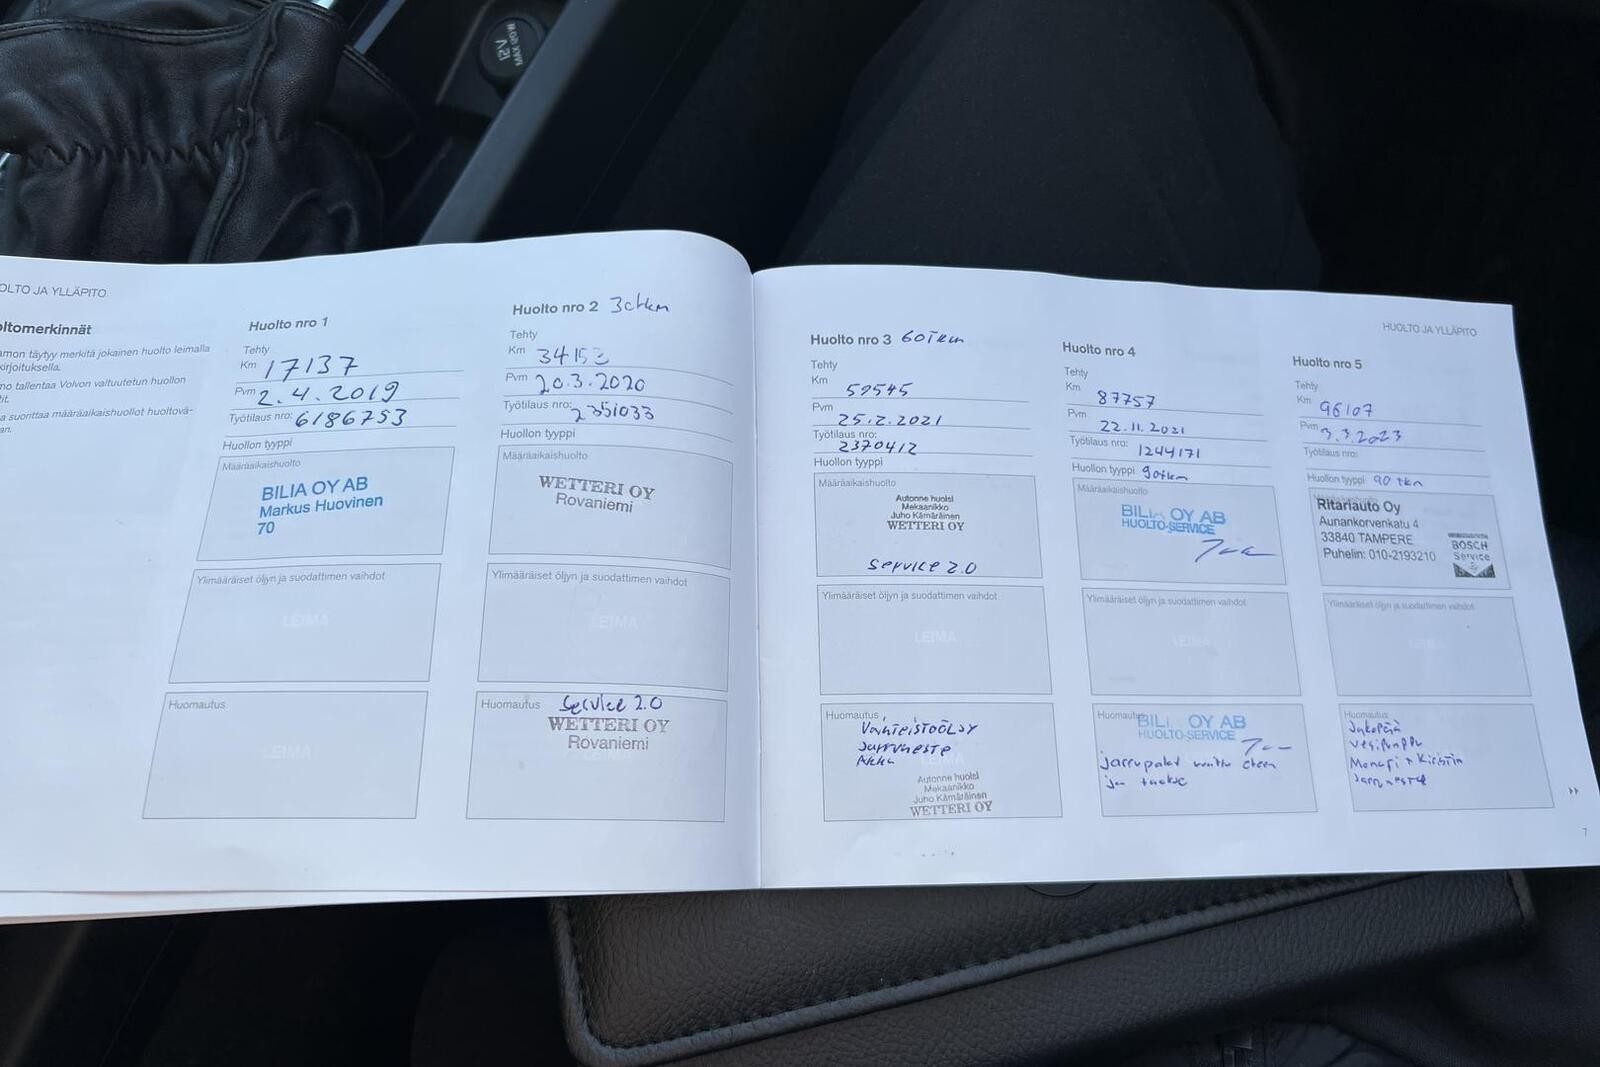 OLTO JA YLLÄPITO
oltomerkinnät
amon täytyy merkitä jokainen huolto leimalla
kirjoituksella.
mo tallentaa Volvon valtuutetun huollon
tit.
a suorittaa määräaikaishuollot huoltovä-
an.
Huolto nro 1
Tehty
Km 17137
Pvm 2.4.2019
Työtilaus nro: 6186753
Huollon tyyppi
Määräaikaishuolto
BILIA OY AB
Markus Huovinen
70
Ylimääräiset öljyn ja suodattimen vaihdot
LEIMA
Huomautus
LEIMA
Huolto nro 2
Tehty
Km
Pvm 20.3.2020
Työtilaus nro: 2351033
Huollon tyyppi
Määräaikaishuolto
WETTERI OY
Rovaniemi
Ylimääräiset öljyn ja suodattimen vaihdot
LEIMA
Huomautus Service 2.0
WETTERI OY
Rovaniemi
Huolto nro 3 60Tkm
Tehty
Km
Pvm 25.2.2021
Työtilaus nro: 2370412
Huollon tyyppi
Määräaikaishuolto
Autonne huolsi
Mekaanikko
Juho Kämäräinen
WETTERI OY
Service 2.0
Ylimääräiset öljyn ja suodattimen vaihdot
LEIMA
Huomautus
Vaihteistoöljy
Jarruneste
Autonne huolsi
Mekaanikko
Juho Kämäräinen
WETTERI OY
HUOLTO JA YLLÄPITO
Huolto nro 4
Tehty
Km 87757
Pvm 22.11.2021
Työtilaus nro: 1244171
Huollon tyyppi 90tkm
Määräaikaishuolto
BILIA OY AB
HUOLTO-SERVICE
Ylimääräiset öljyn ja suodattimen vaihdot
LEIMA
Huomautus
BILIA OY AB
HUOLTO-SERVICE
jarrupalat eteen
ja taakse
Huolto nro 5
Tehty
Km 96107
Pvm 3.3.2023
Työtilaus nro:
Huollon tyyppi 90 tkm
Määräaikaishuolto
Ritariauto Oy
Aunankorvenkatu 4
33840 TAMPERE
Puhelin: 010-2193210
BOSCH
Service
Ylimääräiset öljyn ja suodattimen vaihdot
Huomautus
Jakopää
vesipumppu
Jarruneste
7
12V
MAX 120W